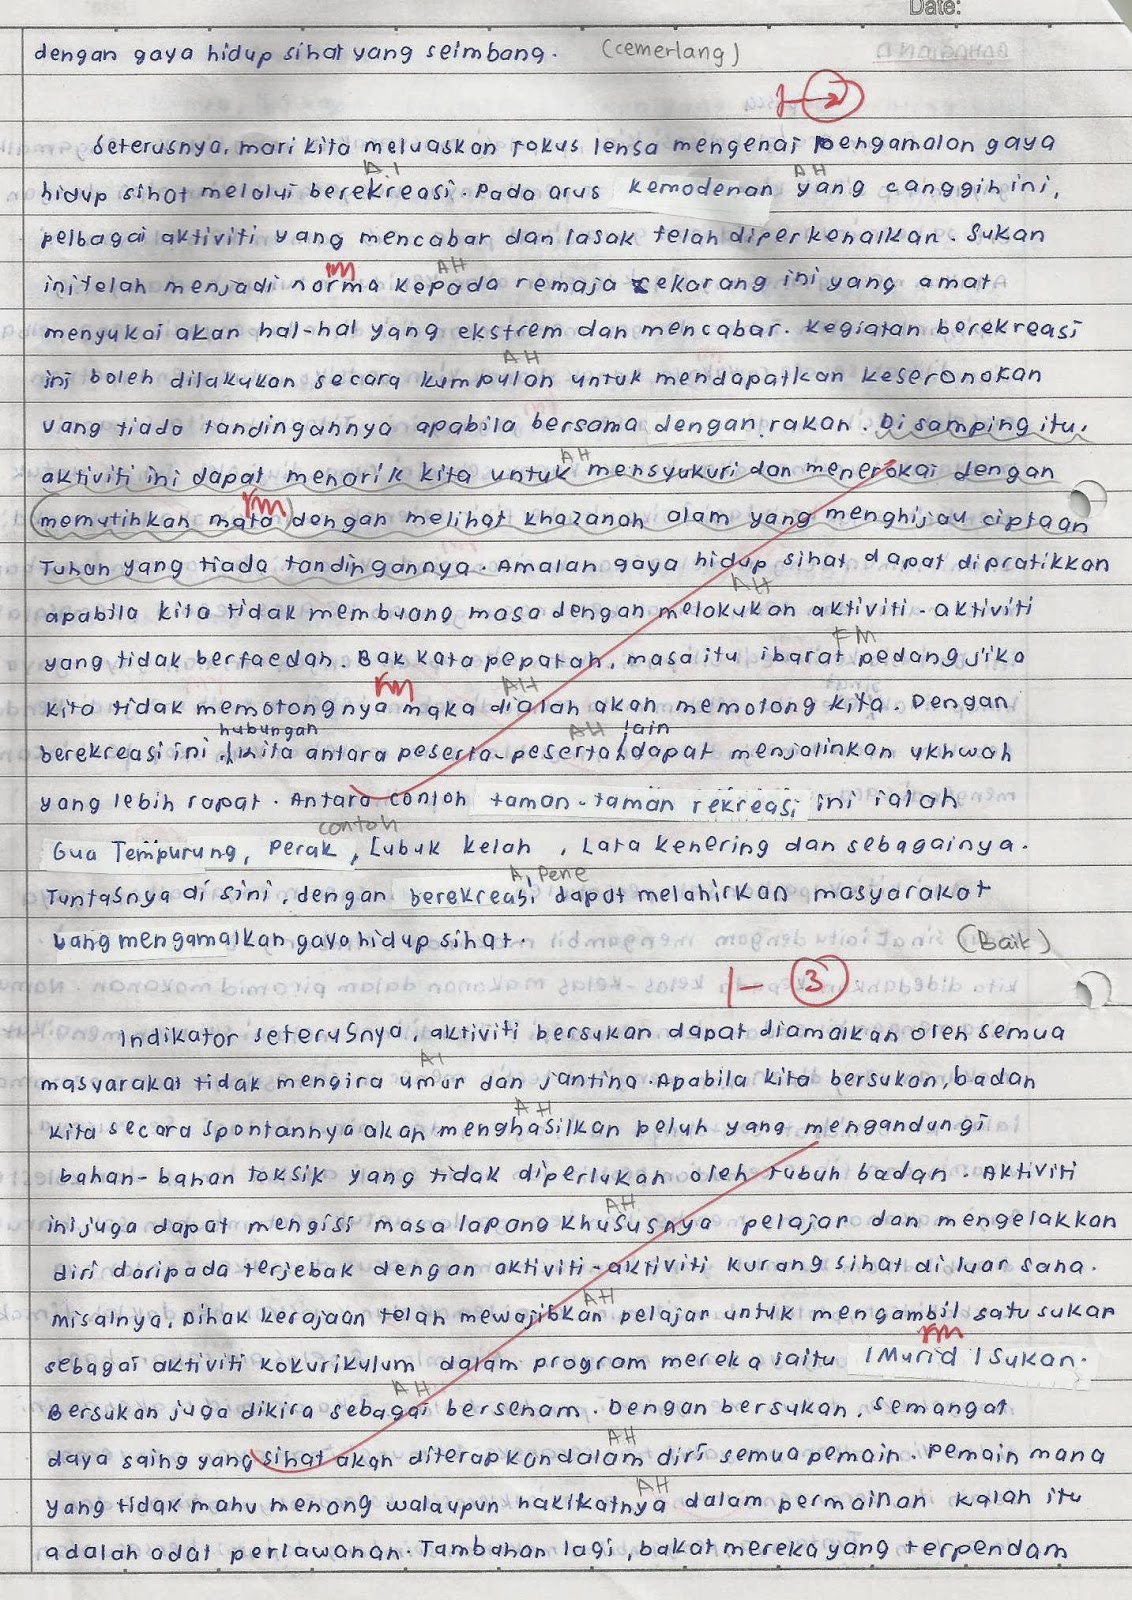 Date:
dengan gaya hidup sihat yang seimbang. (cemerlang)
1 → 2
Seterusnya, mari kita meluaskan fokus lensa mengenai pengamalan gaya
A.I AH
hidup sihat melalui berekreasi. Pada arus kemodenan yang canggih ini,
pelbagai aktiviti yang mencabar dan lasak telah diperkenalkan. Sukan
FM AH
ini telah menjadi norma kepada remaja sekarang ini yang amat
menyukai akan hal-hal yang ekstrem dan mencabar. Kegiatan berekreasi
AH
ini boleh dilakukan secara kumpulan untuk mendapatkan keseronokan
yang tiada tandingannya apabila bersama dengan rakan. Di samping itu,
AH
aktiviti ini dapat menarik kita untuk mensyukuri dan menerokai dengan
FM
memutihkan mata dengan melihat khazanah alam yang menghijau ciptaan
Tuhan yang tiada tandingannya. Amalan gaya hidup sihat dapat dipratikkan
AH
apabila kita tidak membuang masa dengan melakukan aktiviti-aktiviti
FM
yang tidak berfaedah. Bak kata pepatah, masa itu ibarat pedang jika
FM AH
kita tidak memotongnya maka dialah akan memotong kita. Dengan
hubungan AH lain
berekreasi ini, kita antara peserta-peserta dapat menjalinkan ukhwah
yang lebih rapat. Antara contoh taman-taman rekreasi ini ialah
contoh
Gua Tempurung, Perak, Lubuk Kelah, Lata Kenering dan sebagainya.
A, Pene
Tuntasnya di sini, dengan berekreasi dapat melahirkan masyarakat
yang mengamalkan gaya hidup sihat. (Baik)
1 - 3
Indikator seterusnya, aktiviti bersukan dapat diamalkan oleh semua
AI
masyarakat tidak mengira umur dan jantina. Apabila kita bersukan, badan
AH
kita secara spontannya akan menghasilkan peluh yang mengandungi
bahan-bahan toksik yang tidak diperlukan oleh tubuh badan. Aktiviti
AH
ini juga dapat mengisi masa lapang khususnya pelajar dan mengelakkan
diri daripada terjebak dengan aktiviti-aktiviti kurang sihat di luar sana.
AH
Misalnya, pihak kerajaan telah mewajibkan pelajar untuk mengambil satu sukan
FM
sebagai aktiviti kokurikulum dalam program mereka iaitu 1Murid 1Sukan.
AH
Bersukan juga dikira sebagai bersenam. Dengan bersukan, semangat
AH
daya saing yang sihat akan diterapkan dalam diri semua pemain. Pemain mana
AH
yang tidak mahu menang walaupun hakikatnya dalam permainan kalah itu
adalah adat perlawanan. Tambahan lagi, bakat mereka yang terpendam